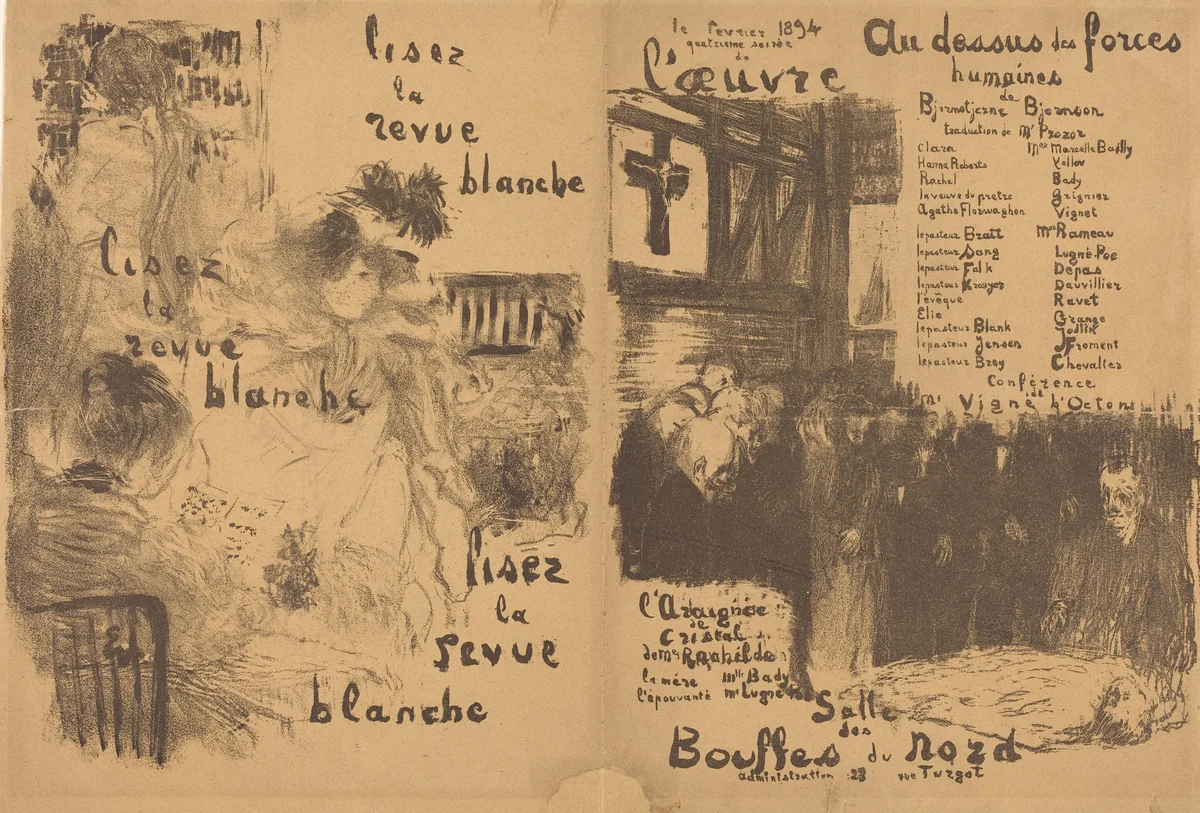 lisez
la
revue
blanche
lisez
la
revue
blanche
lisez
la
revue
blanche
EV
le fevrier 1894
quatrieme soirée
de
l'œuvre
Au dessus des forces
humaines
de
Bjornstjerne Bjornson
traduction de Mr Prozor
Clara Mmes Marcelle Bailly
Hanna Roberts Yellov
Rachel Bady
la veuve du pretre Grignier
Agathe Florwaghen Vignet
le pasteur Bratt Mrs Rameau
le pasteur Sang Lugné-Poe
le pasteur Falk Depas
le pasteur Kroeyer Dauvillier
l'évêque Ravet
Elie Grange
le pasteur Blank
le pasteur Jensen Froment
le pasteur Brey Chevalier
Conférence
de
Mr Vigné d'Octon
l'Araignée
de
Cristal
de Me Rachilde
la mère Mlle Bady
l'épouvanté Mr Lugné Poe
Salle
des
Bouffes du Nord
administration : 23 rue Turgot